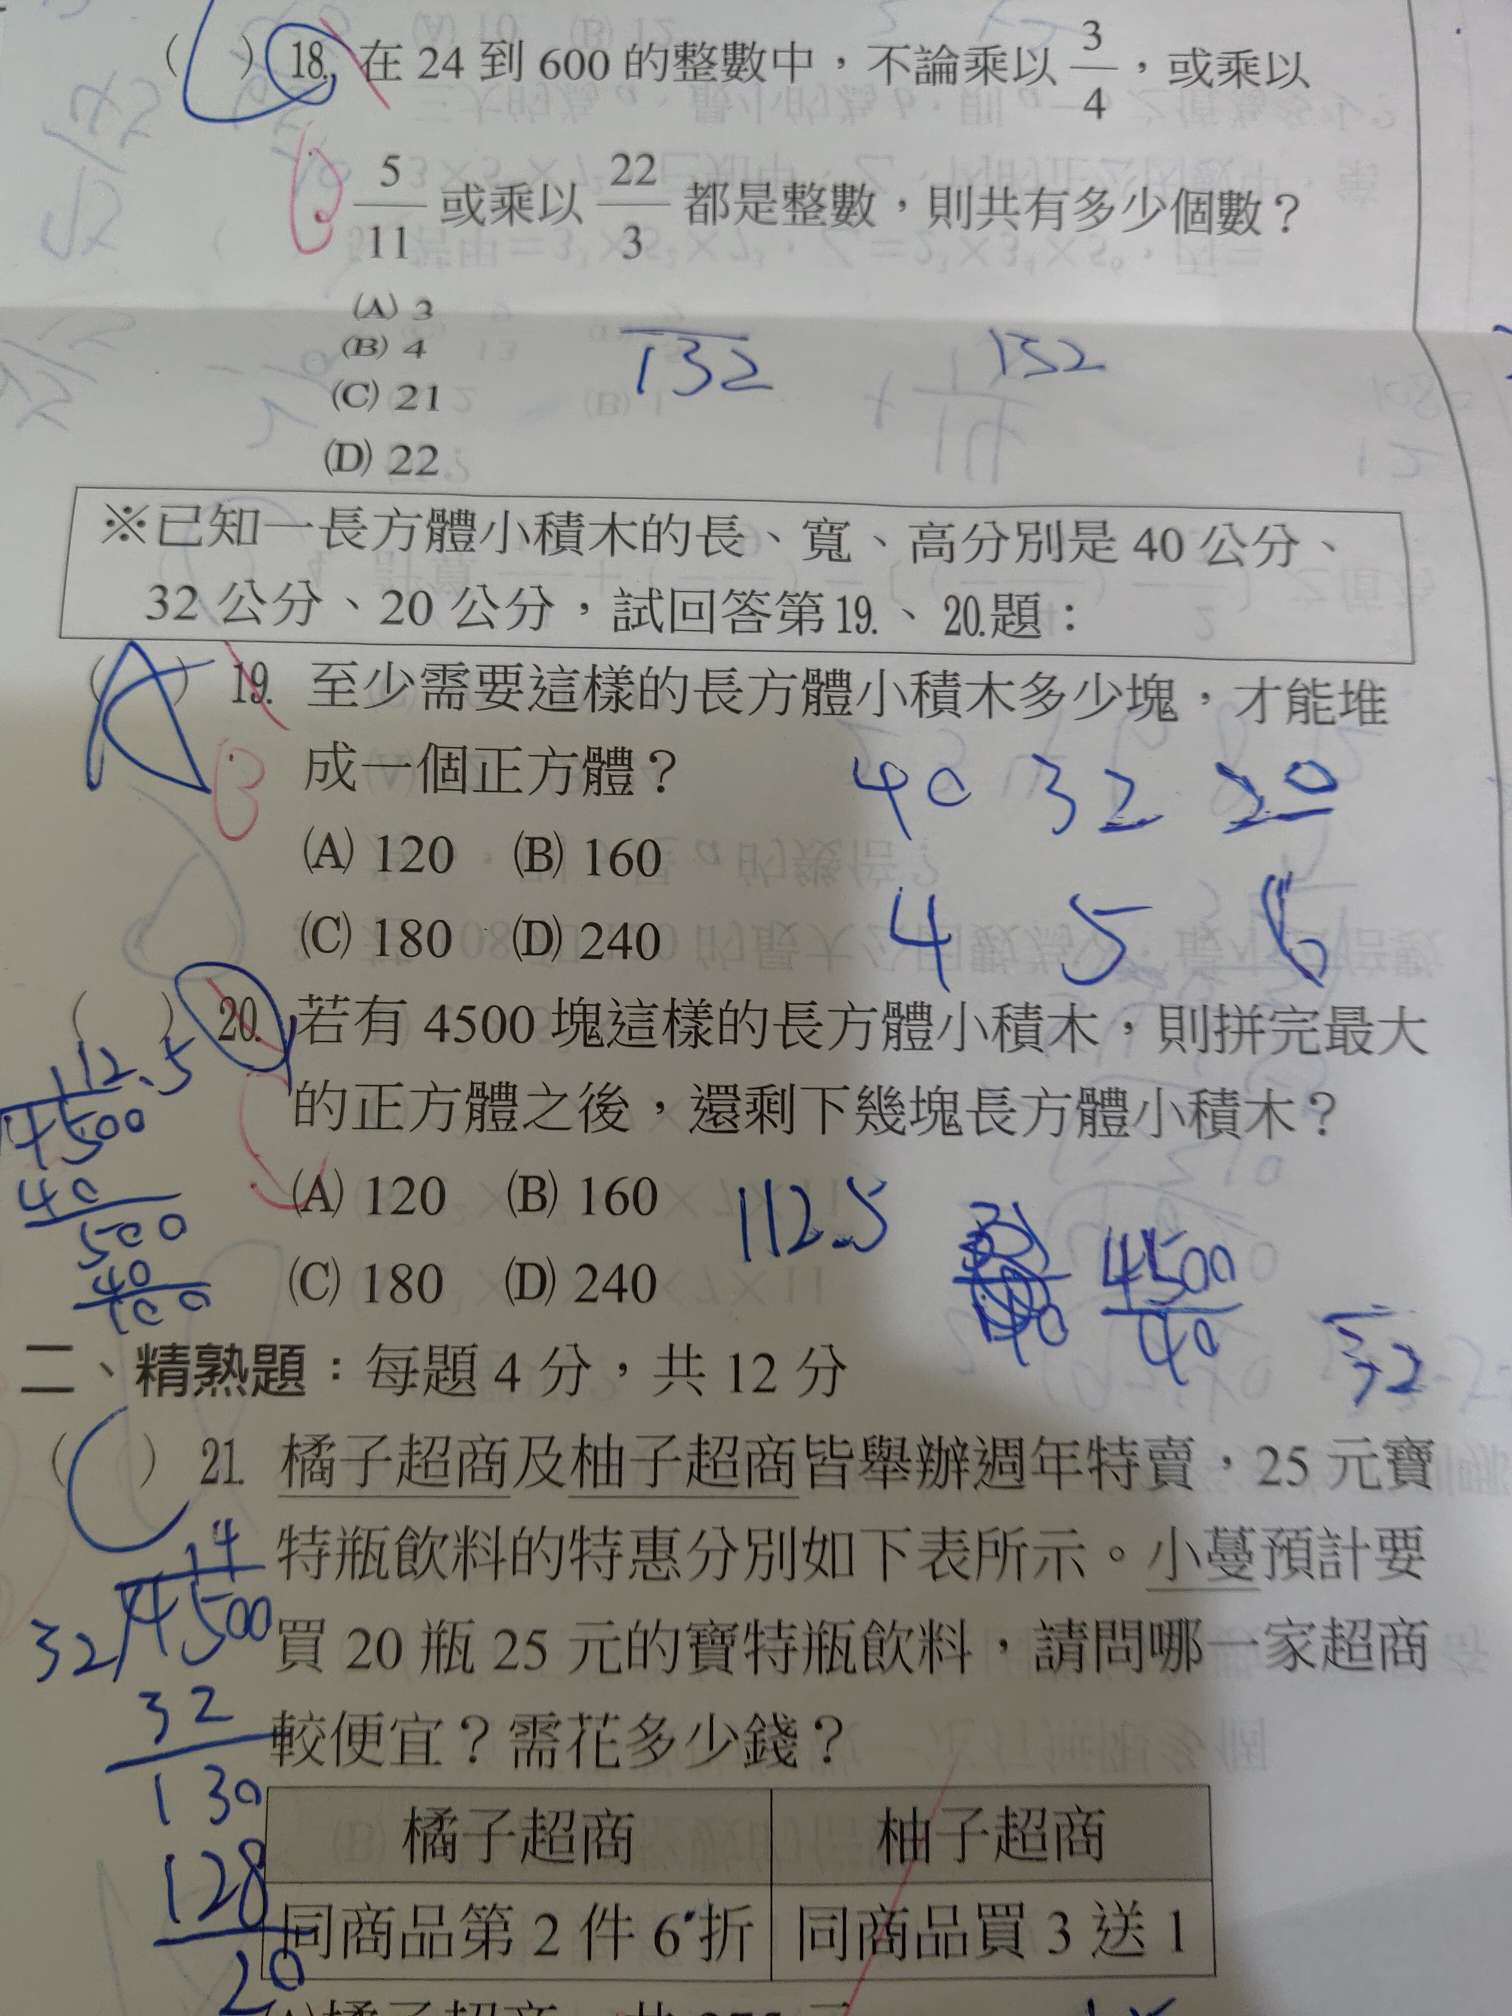 ( ) 18. 在 24 到 600 的整數中，不論乘以 3/4，或乘以
5/11 或乘以 22/3 都是整數，則共有多少個數？
(A) 3
(B) 4
(C) 21
(D) 22
132 132
※已知一長方體小積木的長、寬、高分別是 40 公分、
32 公分、20 公分，試回答第 19.、20.題：
(A) 19. 至少需要這樣的長方體小積木多少塊，才能堆
成一個正方體？
B
40 32 20
(A) 120 (B) 160
(C) 180 (D) 240
4 5
( ) 20. 若有 4500 塊這樣的長方體小積木，則拼完最大
的正方體之後，還剩下幾塊長方體小積木？
112.5
4500
40
500
40
(A) 120 (B) 160
112.5
4500
40
32
(C) 180 (D) 240
二、精熟題：每題 4 分，共 12 分
( ) 21. 橘子超商及柚子超商皆舉辦週年特賣，25 元寶
特瓶飲料的特惠分別如下表所示。小蔓預計要
買 20 瓶 25 元的寶特瓶飲料，請問哪一家超商
較便宜？需花多少錢？
14
32 4500
32
130
128
20
橘子超商 柚子超商
同商品第 2 件 6 折 同商品買 3 送 1